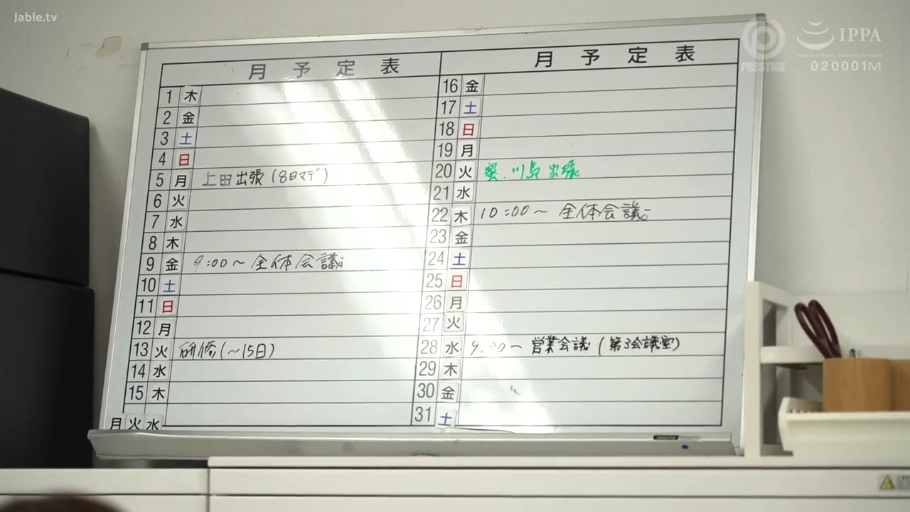 Jable.tv
IPPA
PRESTIGE
020001M
月予定表
1 木
2 金
3 土
4 日
5 月 上田出張(8日マデ)
6 火
7 水
8 木
9 金 9:00〜全体会議
10 土
11 日
12 月
13 火 研修(〜15日)
14 水
15 木
月火水
月予定表
16 金
17 土
18 日
19 月
20 火 川島出張
21 水
22 木 10:00〜全体会議
23 金
24 土
25 日
26 月
27 火
28 水 〜営業会議(第3会議室)
29 木
30 金
31 土